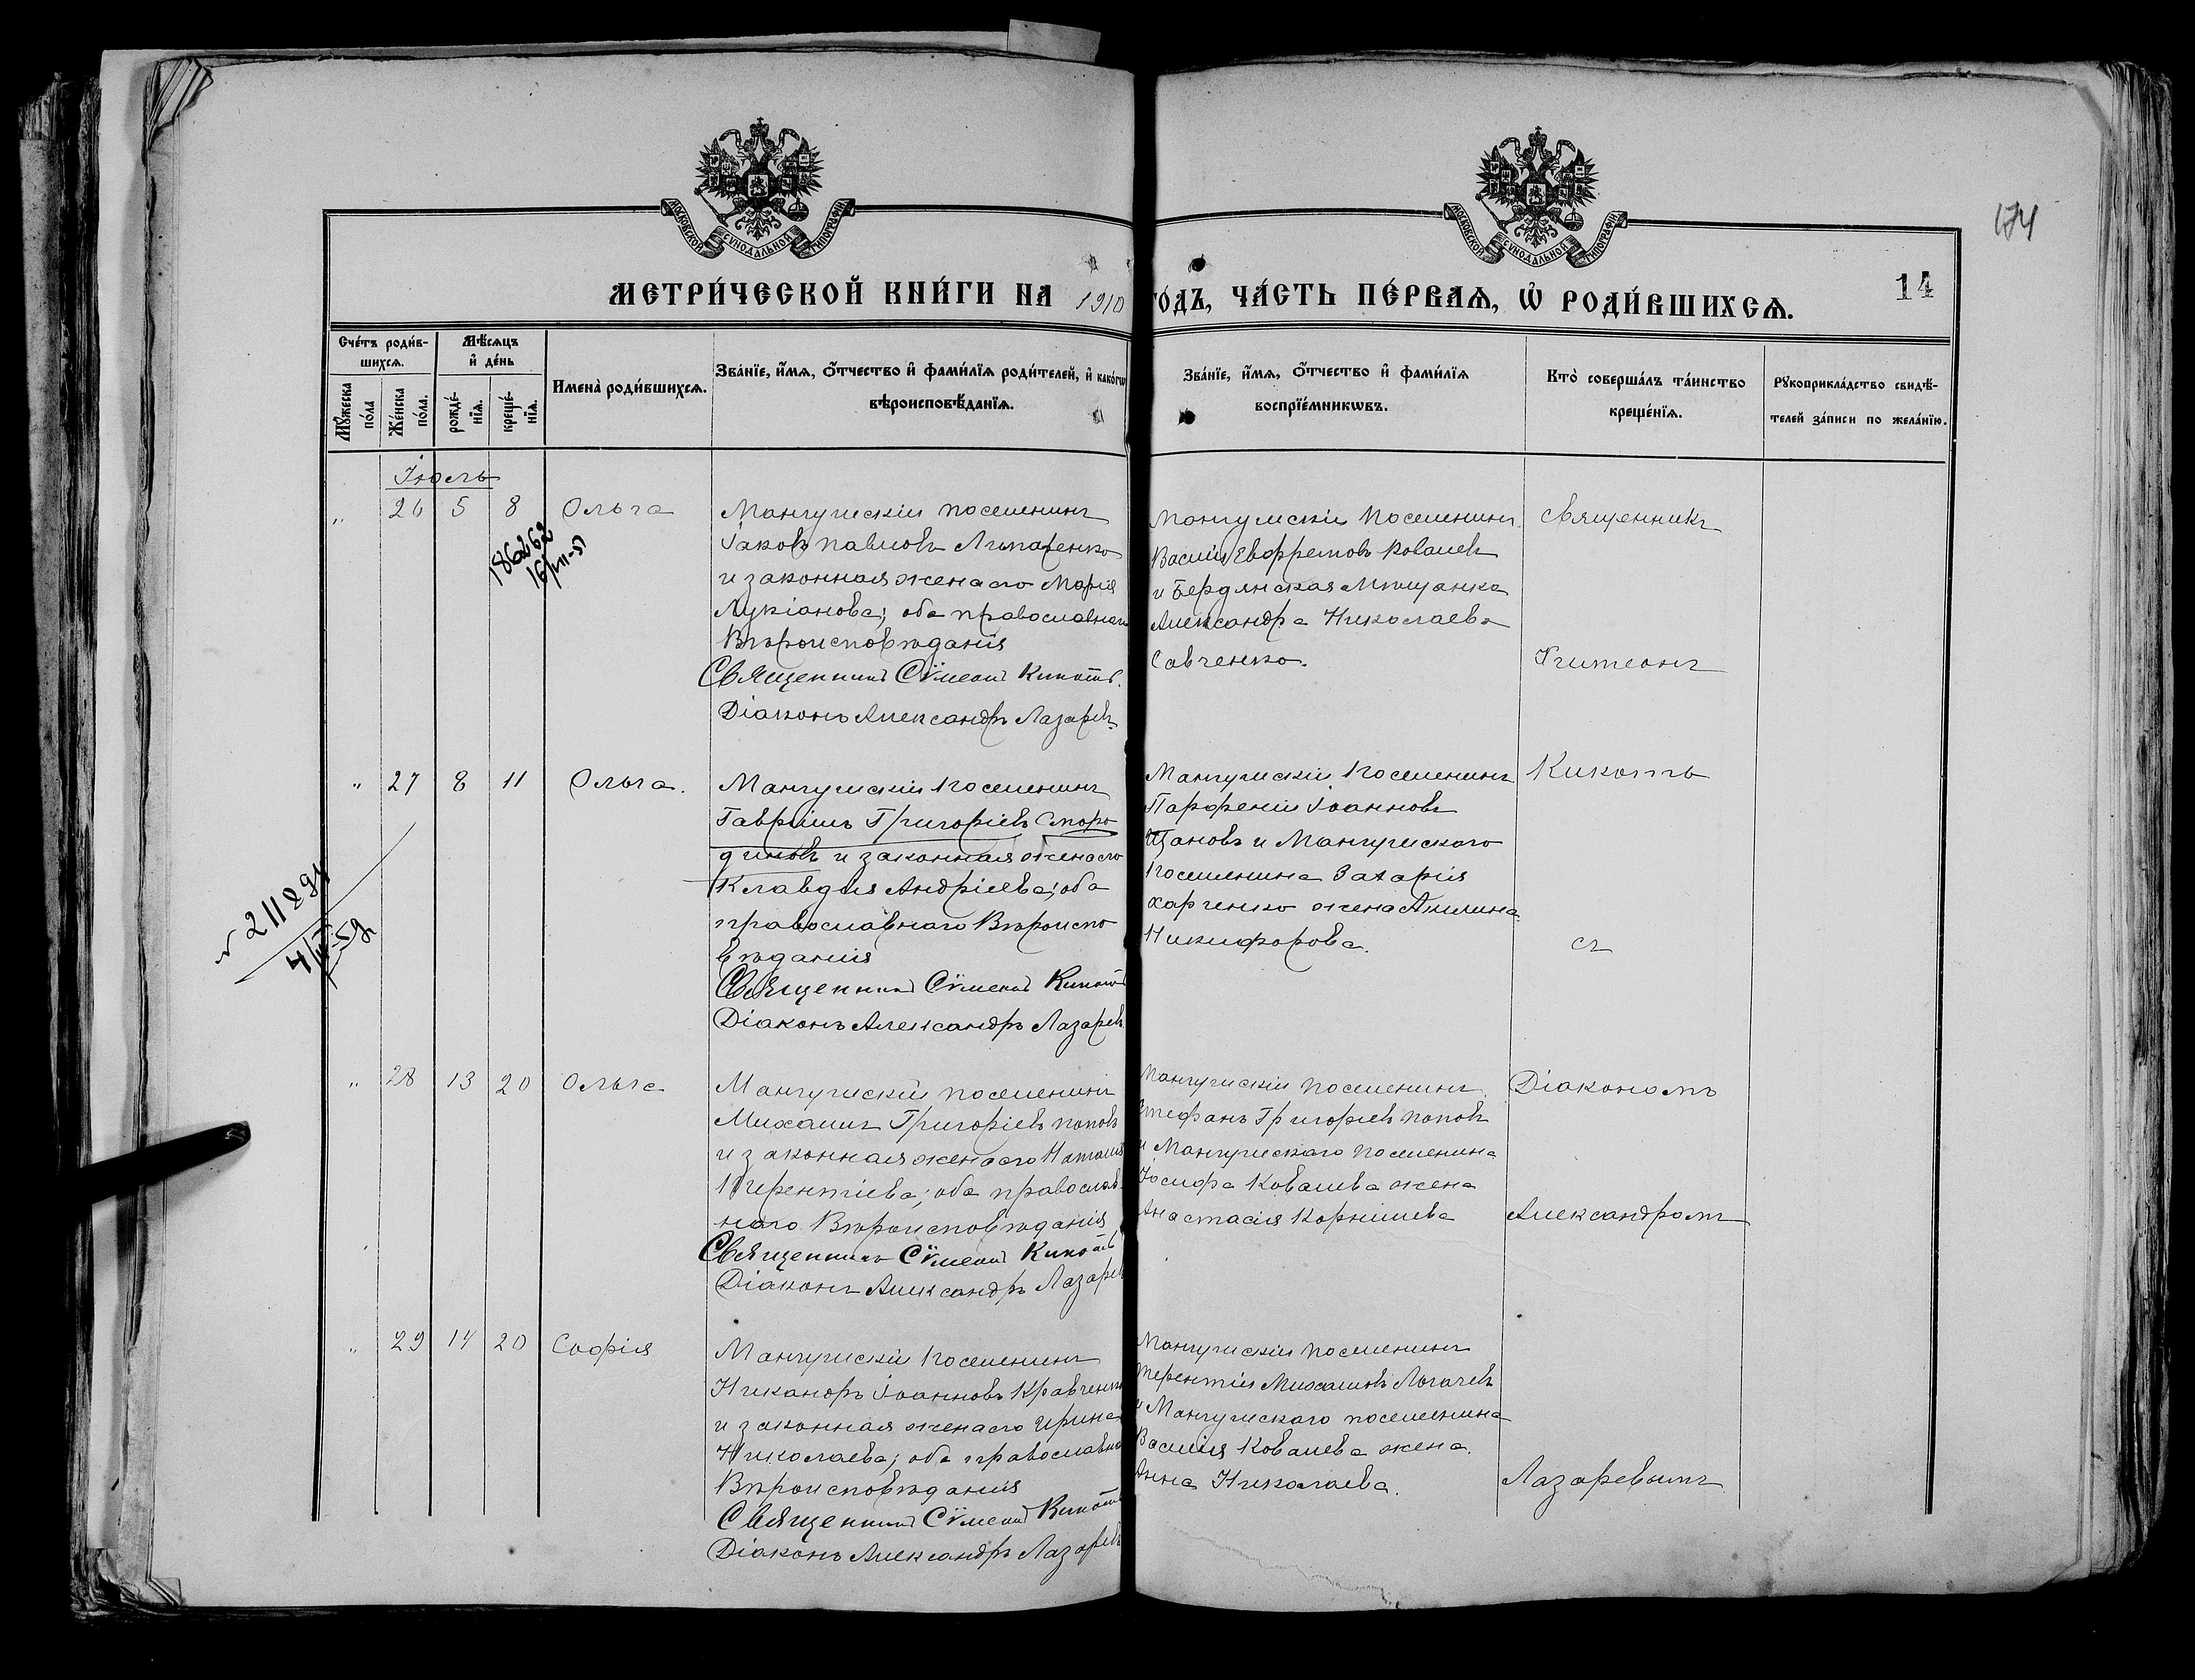 МОСКОВСКОЙ СѴНОДАЛЬНОЙ ТИПОГРАФІИ
МОСКОВСКОЙ СѴНОДАЛЬНОЙ ТИПОГРАФІИ
174
14
МЕТРИ́ЧЕСКОЙ КНИ́ГИ НА 1910 ГО́ДЪ, ЧА́СТЬ ПЕ́РВАѦ, Ѡ҆ РОДИ́ВШИХСѦ.
Сче́тъ роди́в-
шихсѧ.
Мꙋ́жеска по́ла
Же́нска по́ла.
Мѣ́сѧцъ
и҆ де́нь
рожде́-нїѧ.
креще́-нїѧ.
Имена̀ роди́вшихсѧ.
Зва́нїе, и҆́мѧ, ѻ҆́тчество и҆ фами́лїѧ роди́телей, и҆ како́гѡ
вѣроисповѣ́данїѧ.
Зва́нїе, и҆́мѧ, ѻ҆́тчество и҆ фами́лїѧ
воспрїе́мникѡвъ.
Кто̀ соверша́лъ та́инство
креще́нїѧ.
Рꙋкоприкла́дство свидѣ́-
телей за́писи по жела́нїю.
Іюль
„ 26 5 8 Ольга
Мангушскій поселенинъ
Іаковъ Павловъ
и законная жена его Марія
Лукіанова; оба православнаго
Вѣроисповѣданія
Священникъ Сѵмеонъ Кикоть.
Діаконъ Александръ Лазаревъ
Мангушскій поселенинъ
Василій Евфремовъ Ковалевъ
и Бердянская Мѣщанка
Александра Николаева
Савченко.
Священникъ
Сѵмеонъ
„ 27 8 11 Ольга.
Мангушскій поселенинъ
Гавріилъ Григоріевъ Сморо
диновъ и законная жена его
Клавдія Андріева; оба
православнаго Вѣроиспо
вѣданія
Священникъ Сѵмеонъ Кикоть
Діаконъ Александръ Лазаревъ
Мангушскій поселенинъ
Парфеній Іоанновъ
и Мангушскаго
поселенина Захарія
Харченко жена Акилина
Никифорова.
Кикоть
съ
„ 28 13 20 Ольга
Мангушскій поселенинъ
Михаилъ Григоріевъ Поповъ
и законная жена его Наталія
Терентіева; оба православ
наго Вѣроисповѣданія
Священникъ Сѵмеонъ Кикоть
Діаконъ Александръ Лазаревъ
Мангушскій поселенинъ
Стефанъ Григоріевъ Поповъ
и Мангушскаго поселенина
Іосифа Ковалева жена
Анастасія Корнилиева
Діакономъ
Александромъ
„ 29 14 20 Софія
Мангушскій поселенинъ
Никаноръ Іоанновъ Кравченко
и законная жена его Ирина
Николаева; оба православнаго
Вѣроисповѣданія
Священникъ Сѵмеонъ Кикоть
Діаконъ Александръ Лазаревъ
Мангушскій поселенинъ
Терентій Михаиловъ Логачевъ
и Мангушскаго поселенина
Василія Ковалева жена
Анна Николаева.
Лазаревымъ